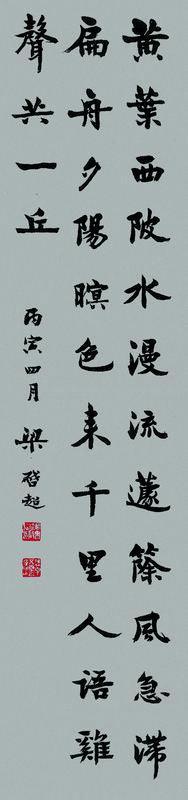 黃葉西陂水漫流蘧篨風急滯
扁舟夕陽暝色来千里人語雞
聲共一丘
丙寅四月 梁啓超